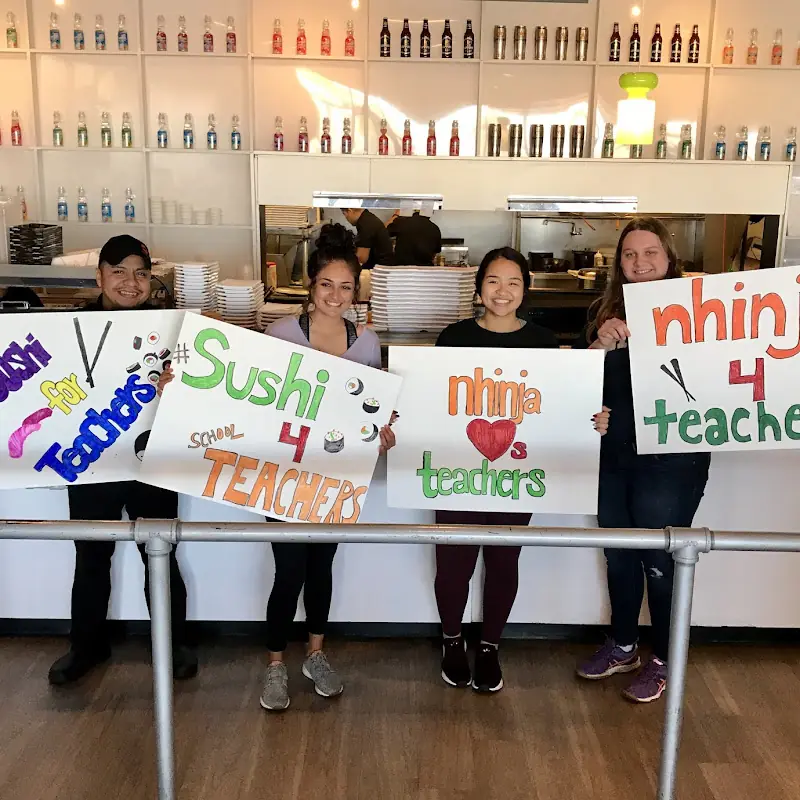 Sushi
for
Teachers
#Sushi
4
SCHOOL
TEACHERS
nhinja
s
teachers
nhinj
4
teache